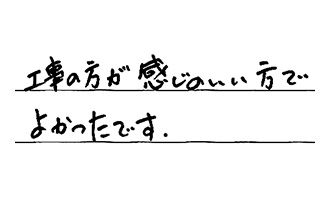 工事の方が感じのいい方で
よかったです.